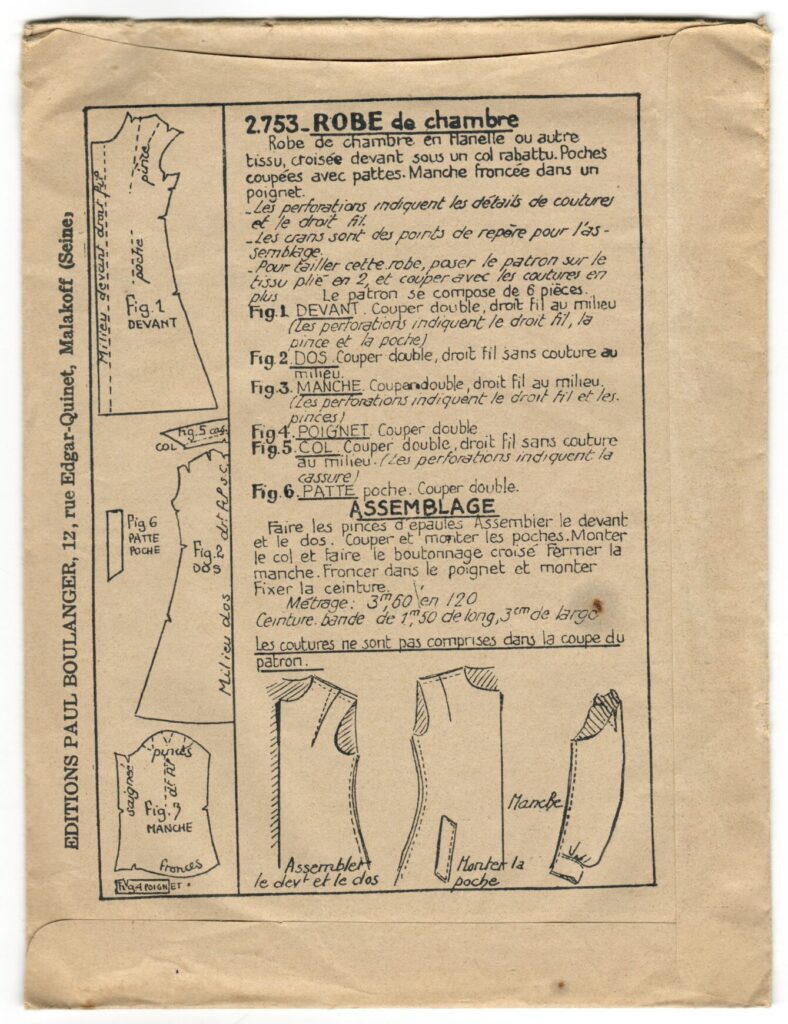 EDITIONS PAUL BOULANGER, 12, rue Edgar-Quinet, Malakoff (Seine)
Milieu devant droit fil
pince
poche
Fig. 1
DEVANT
Fig. 5 cas
COL
Fig 6
PATTE
POCHE
Fig.
DOS
Milieu dos
pinces
saignée
dt fil
Fig. 3
MANCHE
fronces
Fig. 4 POIGNET.
2.753_ ROBE de chambre
Robe de chambre en flanelle ou autre
tissu, croisée devant sous un col rabattu. Poches
coupées avec pattes. Manche froncée dans un
poignet.
_Les perforations indiquent les détails de coutures
et le droit fil.
_Les crans sont des points de repère pour l'as-
semblage.
_Pour tailler cette robe, poser le patron sur le
tissu plié en 2, et couper avec les coutures en
plus Le patron se compose de 6 pièces.
Fig. 1. DEVANT. Couper double, droit fil au milieu
(Les perforations indiquent le droit fil, la
pince et la poche)
Fig. 2. DOS. Couper double, droit fil sans couture au
milieu.
Fig. 3. MANCHE. Couper double, droit fil au milieu.
(Les perforations indiquent le droit fil et les
pinces)
Fig 4. POIGNET. Couper double
Fig. 5. COL. Couper double, droit fil sans couture
au milieu. (Les perforations indiquent la
cassure)
Fig. 6. PATTE poche. Couper double.
ASSEMBLAGE
Faire les pinces d'épaules Assembler le devant
et le dos. Couper et monter les poches. Monter
le col et faire le boutonnage croisé Fermer la
manche. Froncer dans le poignet et monter
Fixer la ceinture.
Métrage: 3m,60 en 120
Ceinture. bande de 1m,50 de long, 3cm de large
Les coutures ne sont pas comprises dans la coupe du
patron.
Assembler
le devt et le dos
Monter la
poche
Manche